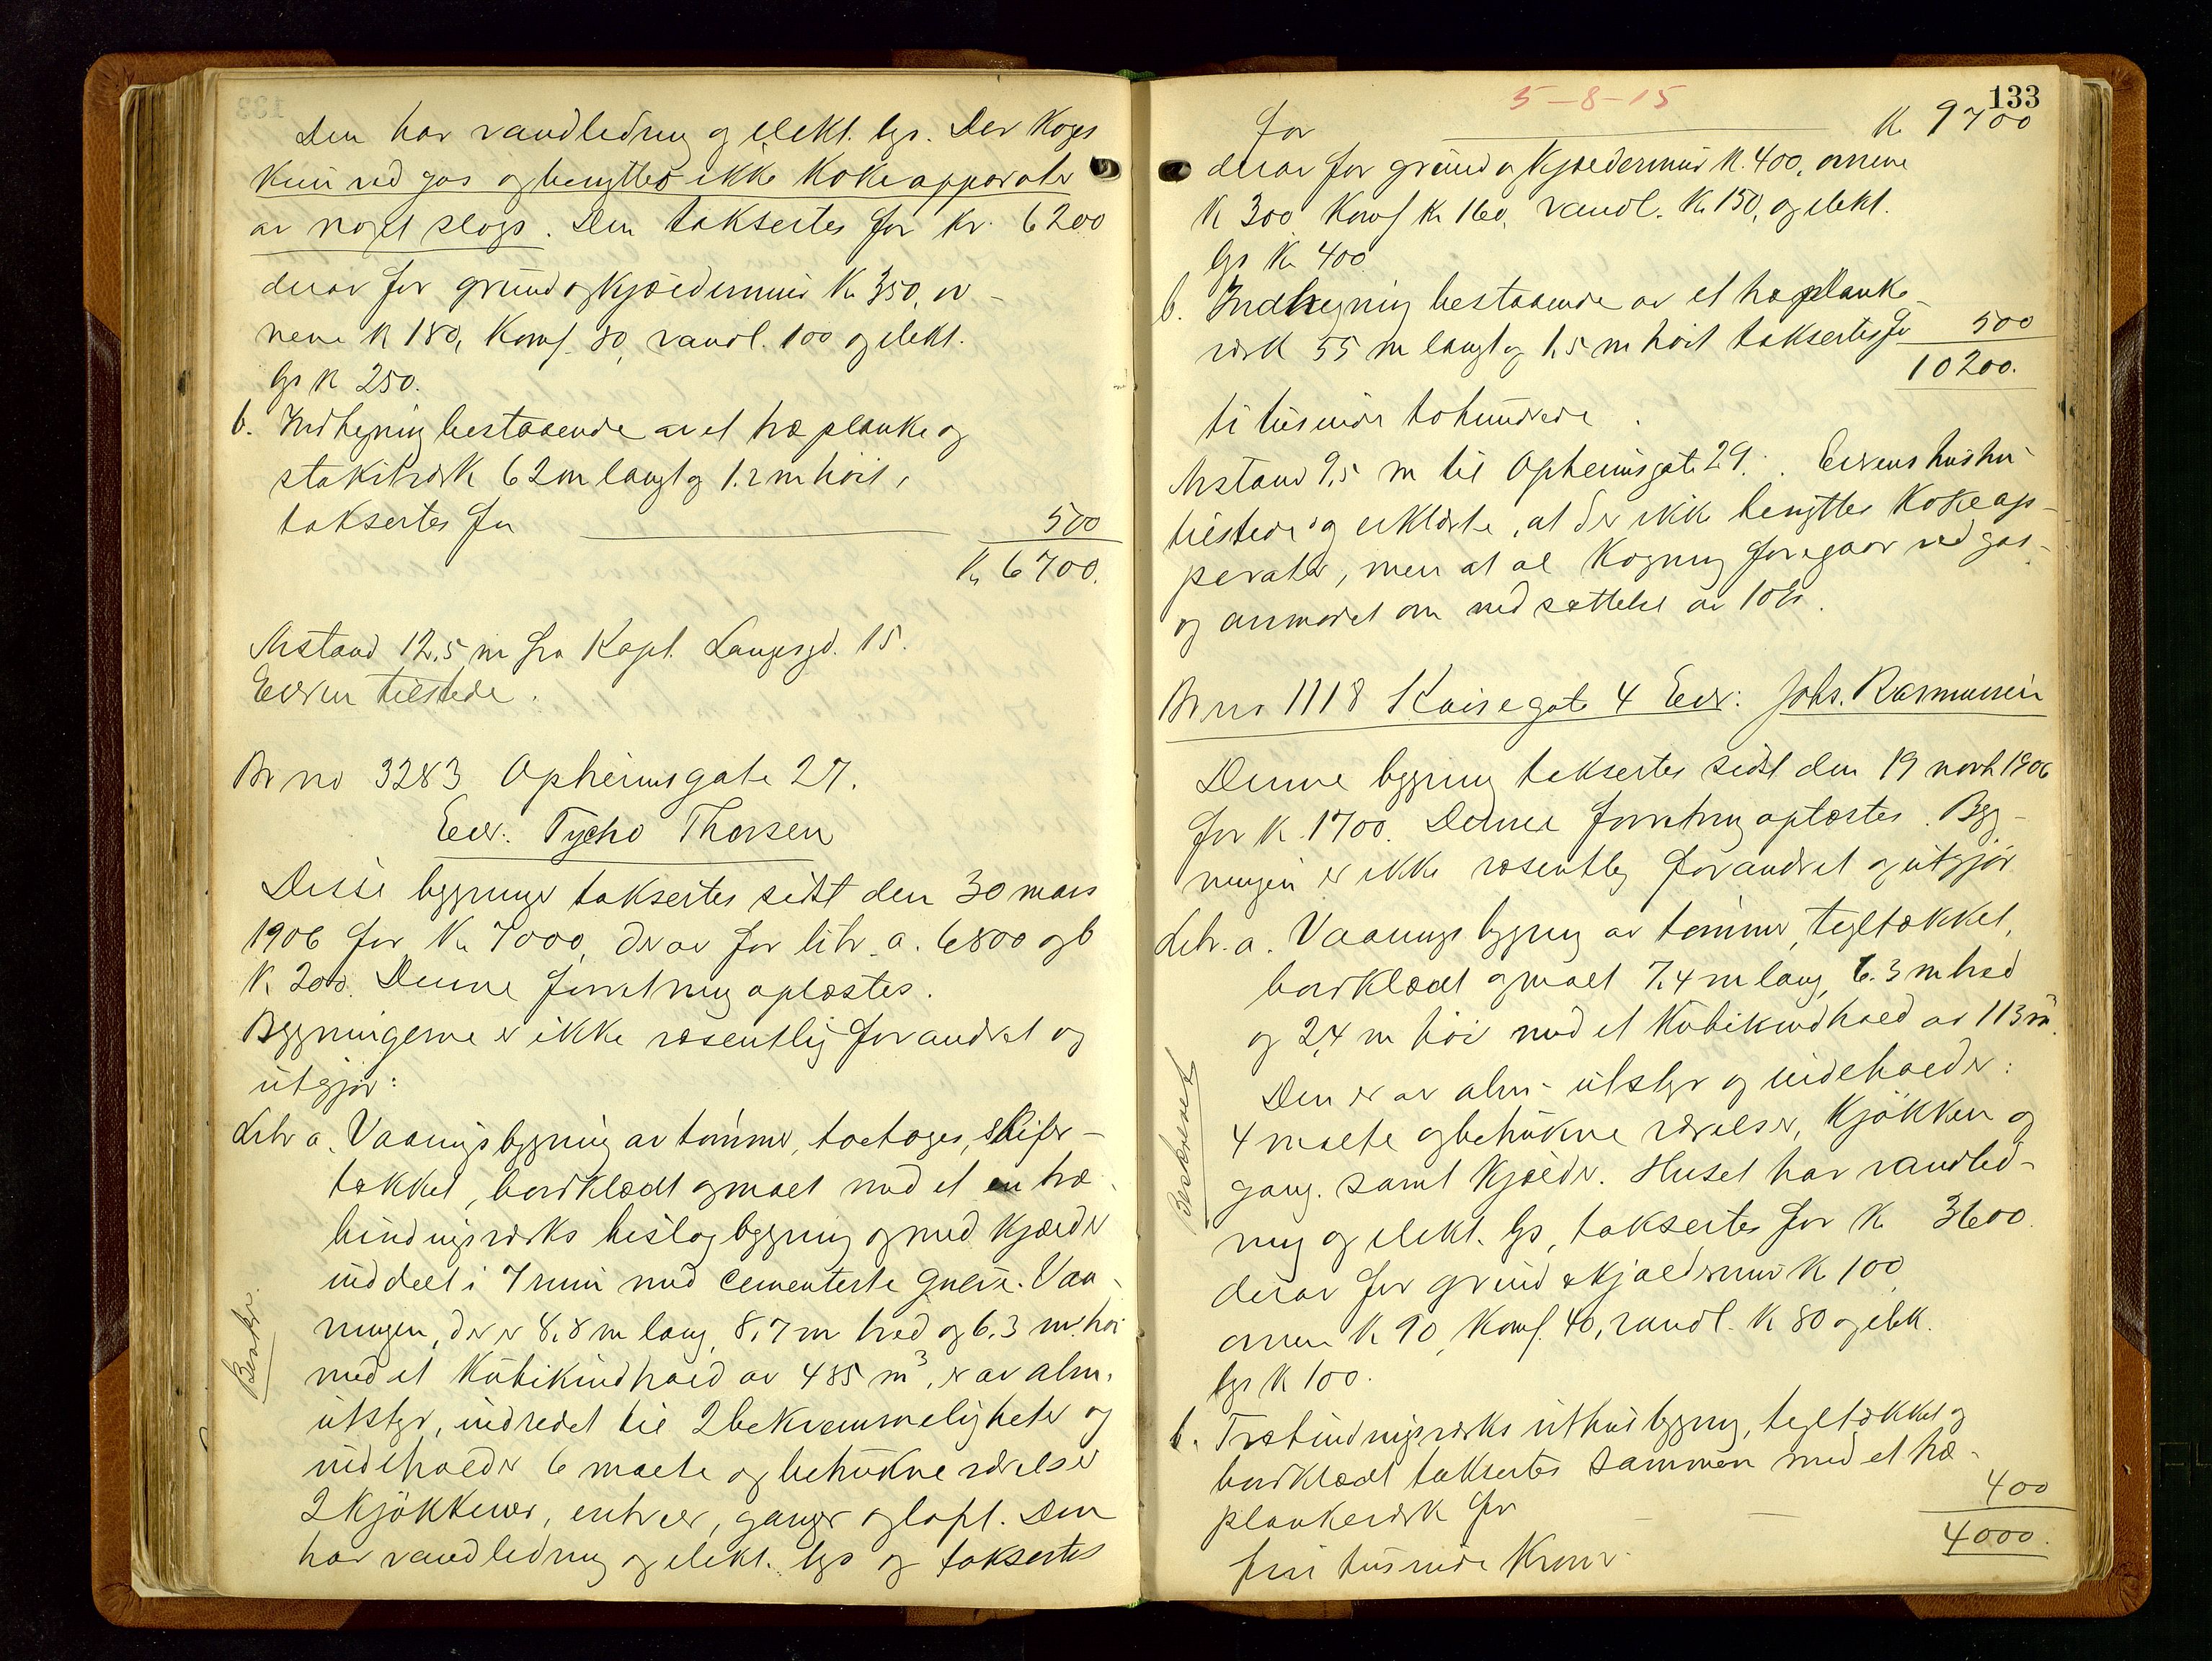 Den har vandledning og elekt. lys. Der koges
kun ved gas og benyttes ikke kokeapparater
av noget slags. Den taksertes for kr. 6200
derav for grund og kjældermur K. 350, ov-
nene K 180, komf. 80, vandl. 100 og elekt.
lys K 250.
b. Indhegning bestaaende av et træplanke og
stakitværk 62 m langt og 1.2 m høit,
taksertes for 500
Kr 6700.
Avstand 12,5 m fra Kapt. Langesgd. 15.
Eieren tilstede.
Br no 3283 Opheimsgate 27.
Eier: Tycho Thorsen
Disse bygninger taksertes sidst den 30 mars
1906 for Kr. 7000, derav for litr. a. 6800 og b
K. 200. Denne forretning oplæstes.
Bygningerne er ikke væsentlig forandret og
utgjør:
Litr a. Vaaningsbygning av tømmer, toetages, skifer-
tækket, bordklædt og malt med et en træ-
bindingsverks bislagbygning og med kjælder
inddelt i 7 rum med cementerte gulve. Vaa-
ningen, der er 8,8 m lang, 8,7 m bred og 6.3 m. høi
med et kubikindhold av 485 m³, er av alm.
utstyr, indredet til 2 bekvemmeligheter og
indeholder 6 malte og betrukne værelser
2 kjøkkener, entreer, ganger og loft. Den
har vandledning og elekt. lys og taksertes
Beskr.
133
5-8-15
for K. 9700
derav for grund og kjældermur K. 400, ovnene
K 300 Komf K. 160, vandl. K. 150, og elekt.
lys K. 400
b. Indhegning bestaaende av et træplanke-
verk 55 m langt og 1,5 m høit taksertes for 500
10200.
ti tusinde tohundrede.
Avstand 9,5 m til Opheimsgate 29. Eierens hustru
tilstede og erklærte, at der ikke benyttes kokeap-
perater, men at al kogning foregaar ved gas-
og anmodet om nedsættelse av 10%.
Br no 1118 Kaisegate 4 Eier: Johs. Rasmussen
Denne bygning taksertes sidst den 19 novb. 1906
for K. 1700. Denne forretning oplæstes. Byg-
ningen er ikke væsentlig forandret og utgjør
Litr. a. Vaaningsbygning av tømmer, tegltækket,
bordklædt og malt 7,4 m lang, 6.3 m bred
og 2,4 m høi med et kubikindhold av 113 m³.
Den er av alm. utstyr og indeholder:
4 malte og betrukne værelser, kjøkken og
gang. samt kjælder. Huset har vandled-
ning og elekt. lys, taksertes for K. 3600.
derav for grund & kjældermur K 100
ovne K 90, Komf. 40, vandl. K 80 og elek.
lys K 100.
Beskrevet
b. Træbindingsverks uthusbygning, tegltækket og
bordklædt taksertes sammen med et træ-
plankeverk for 400
4000.
fire tusinde Kroner.